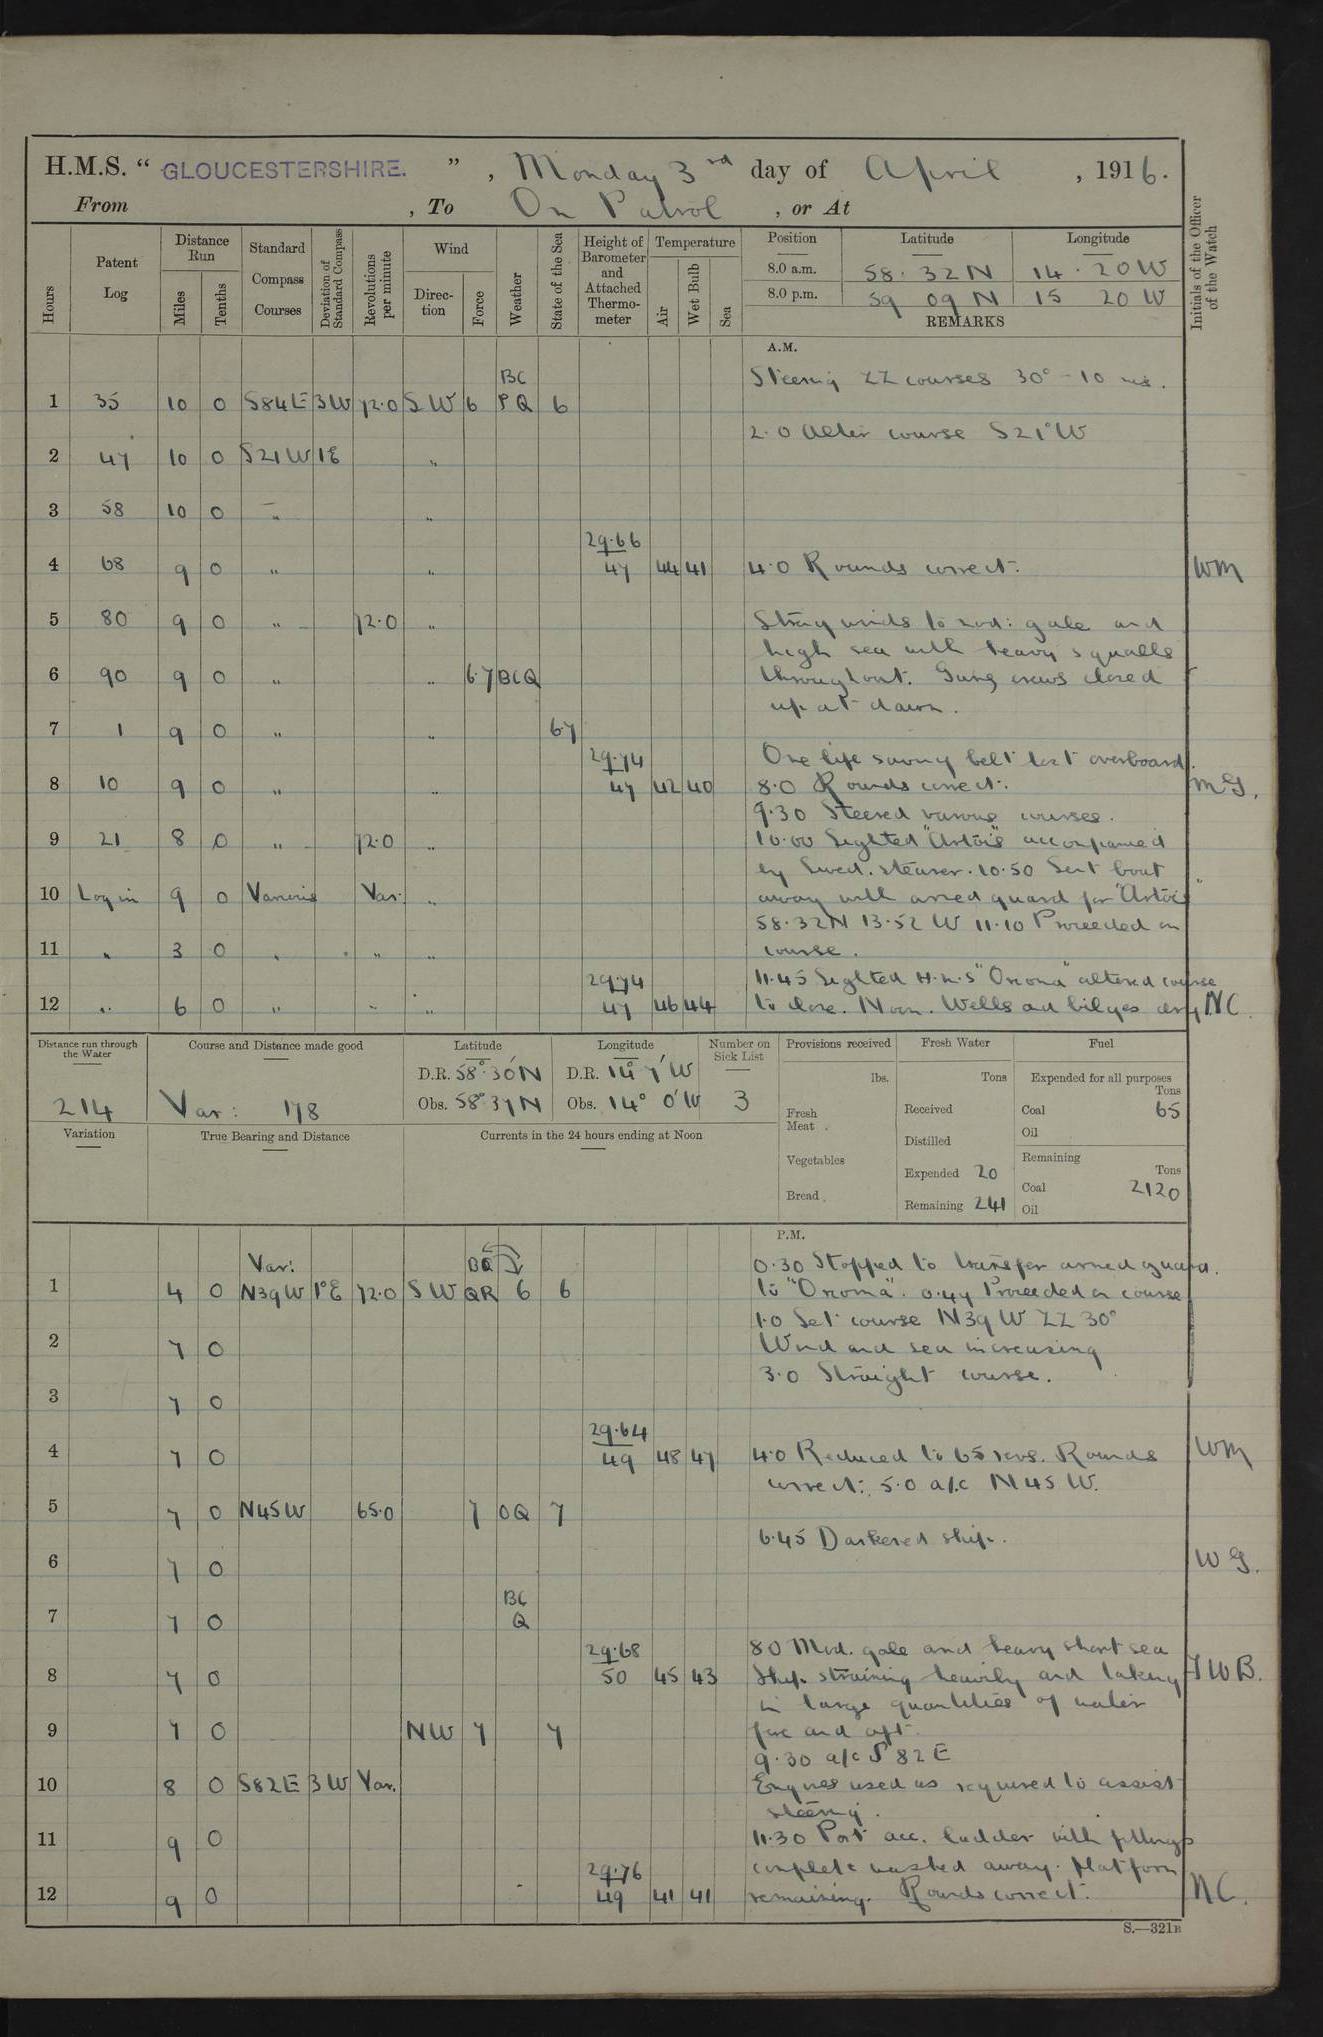 H.M.S. “ GLOUCESTERSHIRE. ” , Monday 3rd day of April , 1916.
From , To On Patrol , or At
Hours
Patent Log
Distance Run
Miles
Tenths
Standard Compass Courses
Deviation of Standard Compass
Revolutions per minute
Wind
Direction
Force
Weather
State of the Sea
Height of Barometer and Attached Thermometer
Temperature
Air
Wet Bulb
Sea
Position Latitude Longitude
8.0 a.m. 58. 32 N 14. 20 W
8.0 p.m. 59 09 N 15 20 W
REMARKS
Initials of the Officer of the Watch
A.M.
Steering ZZ courses 30° - 10 ms.
BC
1 35 10 0 S84E 3W 72.0 SW 6 PQ 6
2.0 Alter course S21°W
2 47 10 0 S21W 1E "
3 58 10 0 " "
29.66
4 68 9 0 " " 47 44 41 4.0 Rounds correct. WM
5 80 9 0 " 72.0 " Strong winds to mod: gale and
high sea with heavy squalls
6 90 9 0 " " 6.7 BCQ throughout. Guns crews closed
up at dawn.
7 1 9 0 " " 67
29.74 One life saving belt lost overboard.
8 10 9 0 " " 47 42 40 8.0 Rounds correct. MG.
9.30 Steered various courses.
9 21 8 0 " 72.0 " 10.00 Sighted "Artois" accompanied
by Swed. steamer. 10.50 Sent boat
10 Log in 9 0 Various Var. " away with armed guard for "Artois"
58.32N 13.52 W 11.10 Proceeded on
11 " 3 0 " " " course.
29.74 11.45 Sighted H.M.S "Oroma" altered course
12 " 6 0 " " " 47 46 44 to close. Noon. Wells and bilges dry. NC.
Distance run through the Water
214
Course and Distance made good
Var: 178
Latitude
D.R. 58° 30' N
Obs. 58° 37 N
Longitude
D.R. 14° 7' W
Obs. 14° 0' W
Number on Sick List
3
Provisions received
lbs.
Fresh Meat
Vegetables
Bread
Fresh Water
Tons
Received
Distilled
Expended 20
Remaining 241
Fuel
Expended for all purposes
Tons
Coal 65
Oil
Remaining
Tons
Coal 2120
Oil
Variation
True Bearing and Distance
Currents in the 24 hours ending at Noon
P.M.
Var: BC 0.30 Stopped to transfer armed guard.
1 4 0 N39W 1°E 72.0 SW QR 6 6 to "Oroma". 0.47 Proceeded on course
1.0 Set course N39W ZZ 30°
2 7 0 Wind and sea increasing
3.0 Straight course.
3 7 0
29.64
4 7 0 49 48 47 4.0 Reduced to 65 revs. Rounds WM
correct: 5.0 a/c N45W.
5 7 0 N45W 65.0 7 OQ 7
6.45 Darkened ship.
6 7 0 WG.
BC
7 7 0 Q
29.68 8.0 Mod. gale and heavy short sea
8 7 0 50 45 43 Ship straining heavily and taking WB.
in large quantities of water
9 7 0 NW 7 7 fore and aft.
9.30 a/c S82E
10 8 0 S82E 3W Var. Engines used as required to assist
steering.
11 9 0 11.30 Port acc. ladder with fittings
29.76 complete washed away. Platform
12 9 0 49 41 41 remaining. Rounds correct. NC.
S.—321B